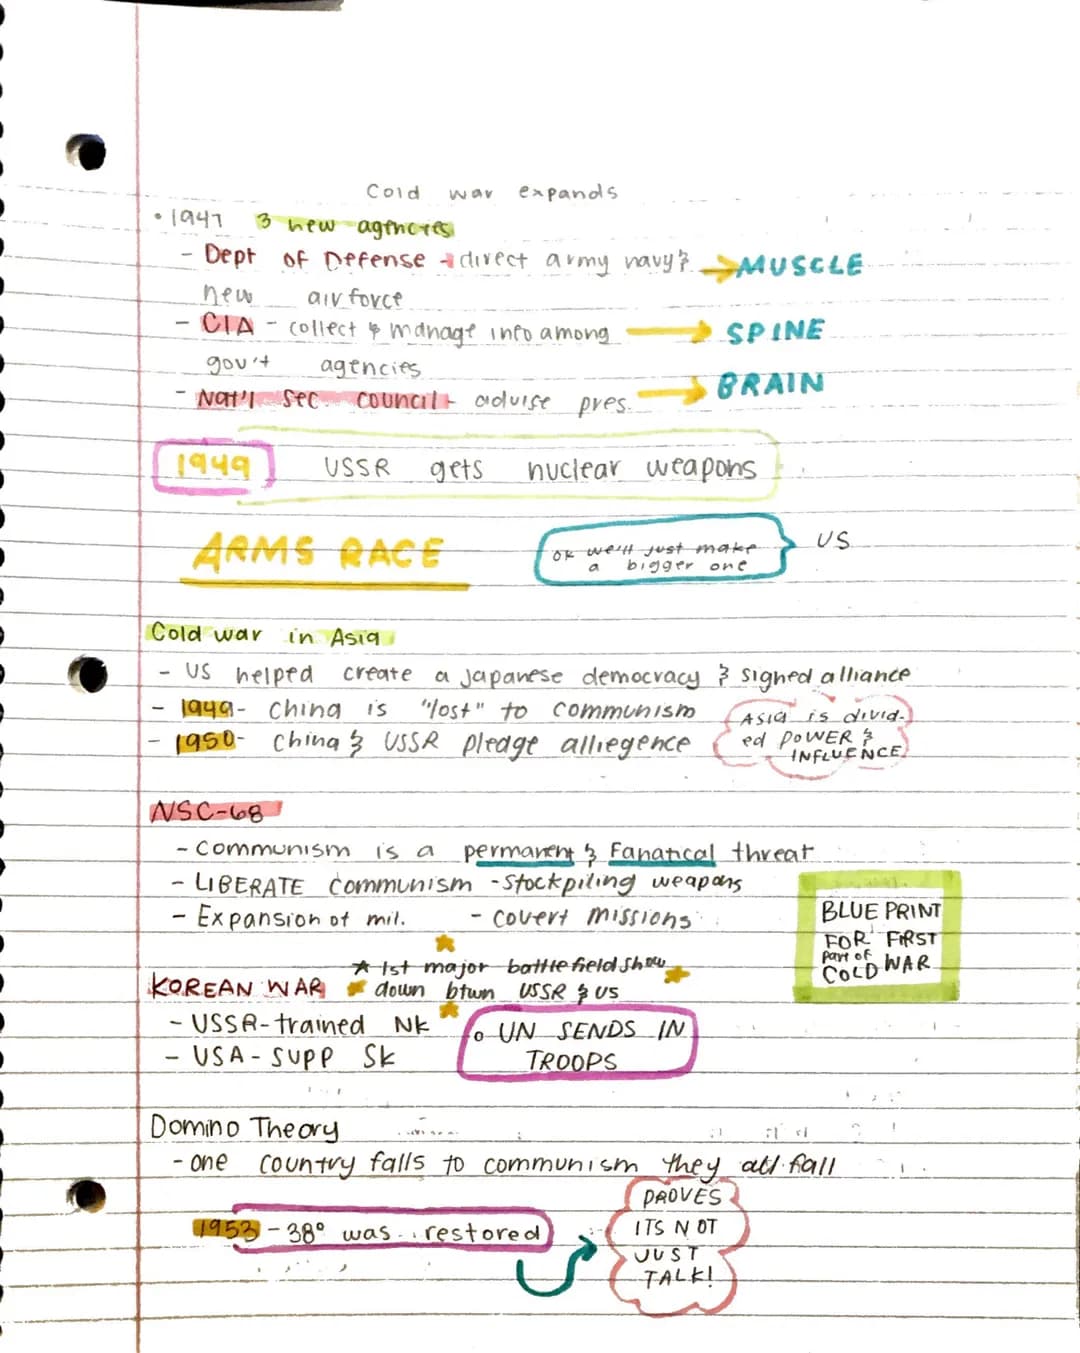 Cold war expands
• 1947 3 new agencies
- Dept of Defense → direct army navy & → MUSCLE
new air force
- CIA - collect & manage info among → SPINE
gov't agencies
- Nat'l Sec. Council - advise pres. → BRAIN
1949 USSR gets nuclear weapons
ARMS RACE
ok we'll just make
a bigger one
US
Cold war in Asia
- US helped create a Japanese democracy & signed alliance
- 1949- China is "lost" to communism
- 1950- China & USSR pledge alliegence
Asia is divid-
ed POWER &
INFLUENCE
NSC-68
- Communism is a permanent & Fanatical threat
- LIBERATE communism - Stockpiling weapons
- Expansion of mil. - covert missions
BLUE PRINT
FOR FIRST
part of
COLD WAR
KOREAN WAR
★ 1st major battlefield show
down btwn USSR & US
- USSR-trained NK
- USA - SUPP SK
• UN SENDS IN
TROOPS
Domino Theory
- one country falls to communism they all fall
1953 - 38° was restored
PROVES
ITS NOT
JUST
TALK!